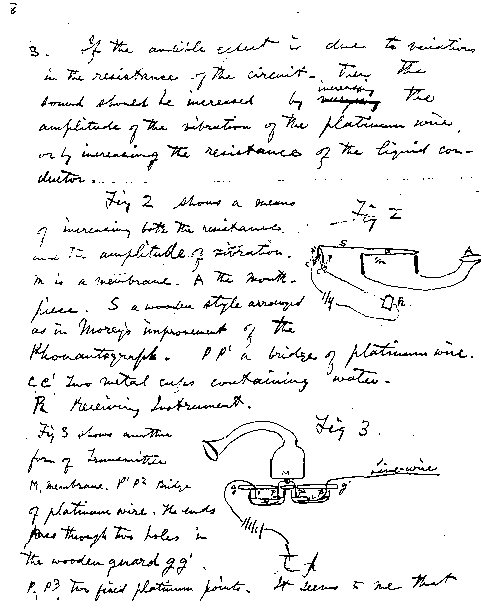 8
3. If the audible effect is due to variations
in the resistance of the circuit - then the
sound should be increased by increasing the
amplitude of the vibration of the platinum wire,
or by increasing the resistance of the liquid con-
ductor.
Fig 2 shows a means
Fig 2
of increasing both the resistance
and the amplitude of vibration.
M is a membrane. A the mouth-
piece. S a wooden style arranged
as in Morey's improvement of the
Phonautograph. P P' a bridge of platinum wire.
C C' two metal cups containing water.
R Receiving Instrument.
Fig 3.
Fig 3 shows another
form of Transmitter
Line-wire
M, membrane. P' P2 Bridge
of platinum wire. The ends
pass through two holes in
the wooden guard gg'.
P, P3, two fixed platinum points. It seems to me that